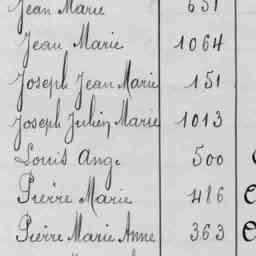 Jean Marie 651
Jean Marie 1064
Joseph Jean Marie 151
Joseph Julien Marie 1013
Louis Ange 500
Pierre Marie 486
Pierre Marie Anne 363